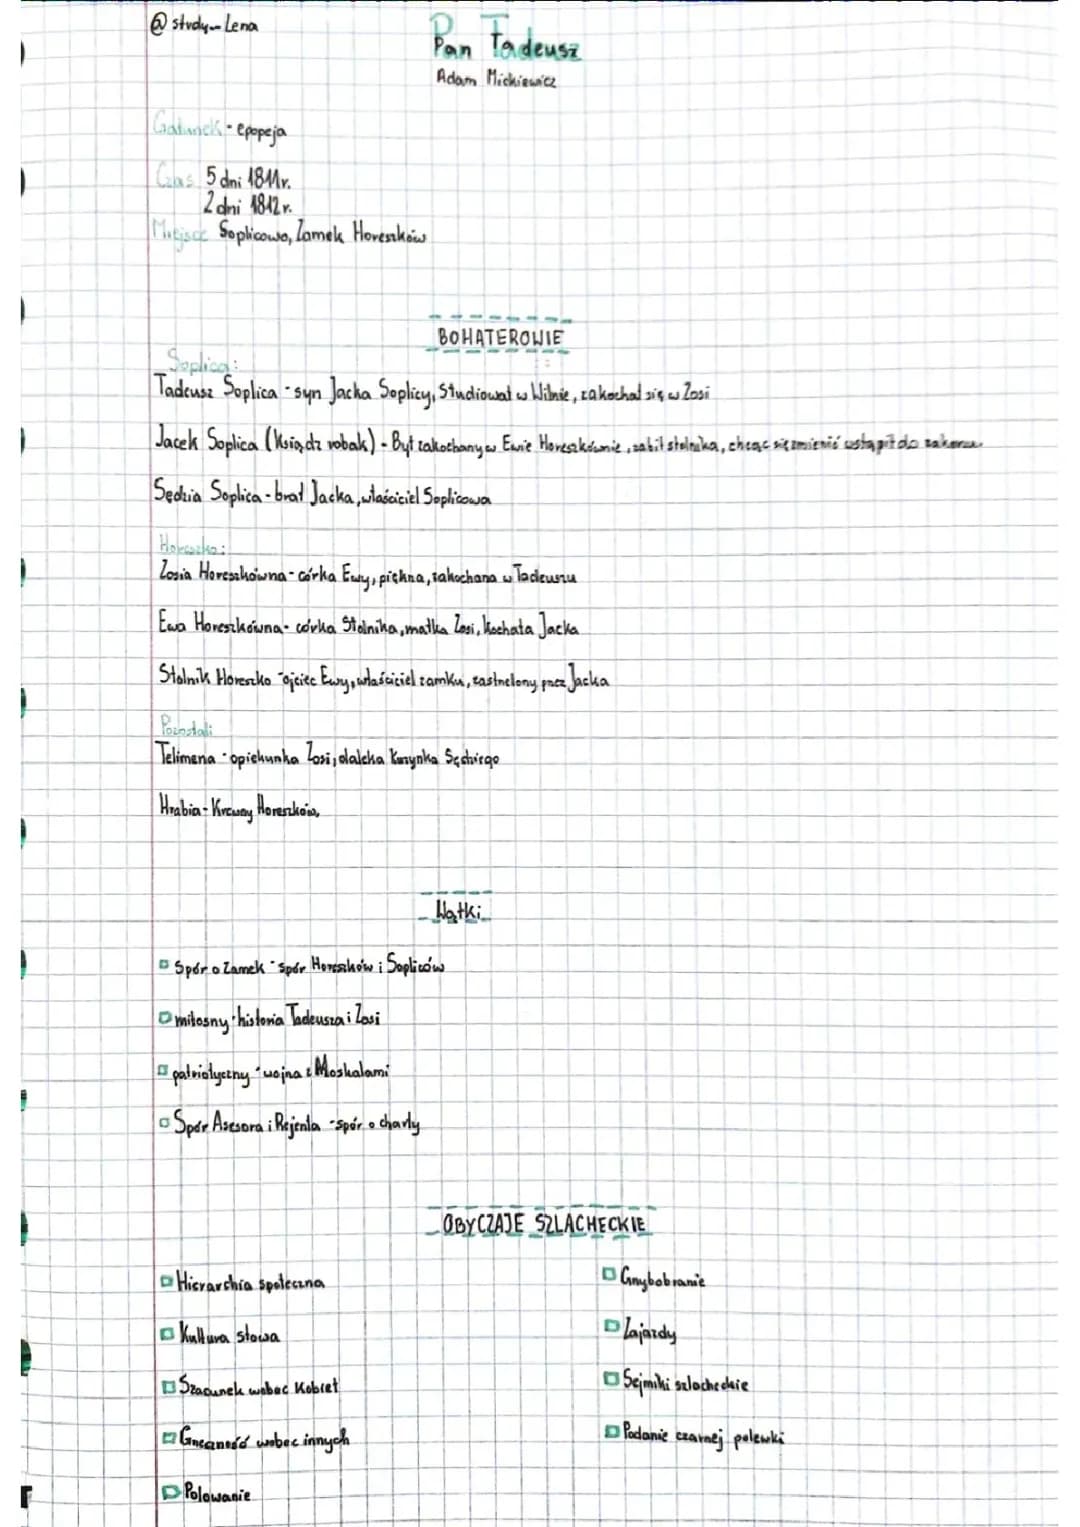 @ study_Lena
Pan Tadeusz
Adam Mickiewicz
Gatunek - epopeja
Czas 5 dni 1811r.
2 dni 1812 r.
Miejsce Soplicowo, Zamek Horeszków
BOHATEROWIE
Soplica:
Tadeusz Soplica - syn Jacka Soplicy, Studiował w Wilnie, zakochał się w Zosi
Jacek Soplica (Ksiądz robak) - Był zakochany w Ewie Horeszkównie, zabił stolnika, chcąc się zmienić wstąpił do zakonu.
Sędzia Soplica - brat Jacka, właściciel Soplicowa
Horeszko:
Zosia Horeszkówna - córka Ewy, piękna, zakochana w Tadeuszu
Ewa Horeszkówna - córka Stolnika, matka Zosi, kochała Jacka
Stolnik Horeszko - ojciec Ewy, właściciel zamku, zastrzelony przez Jacka
Pozostali
Telimena - opiekunka Zosi, daleka kuzynka Sędziego
Hrabia - Krewny Horeszków,
Wątki
Spór o Zamek - spór Horeszków i Sopliców
miłosny - historia Tadeusza i Zosi
patriotyczny - wojna z Moskalami
Spór Asesora i Rejenta - spór o charty
OBYCZAJE SZLACHECKIE
Hierarchia społeczna
Kultura słowa
Szacunek wobec kobiet
Grzeczność wobec innych
Polowanie
Grzybobranie
Zajazdy
Sejmiki szlacheckie
Podanie czarnej polewki